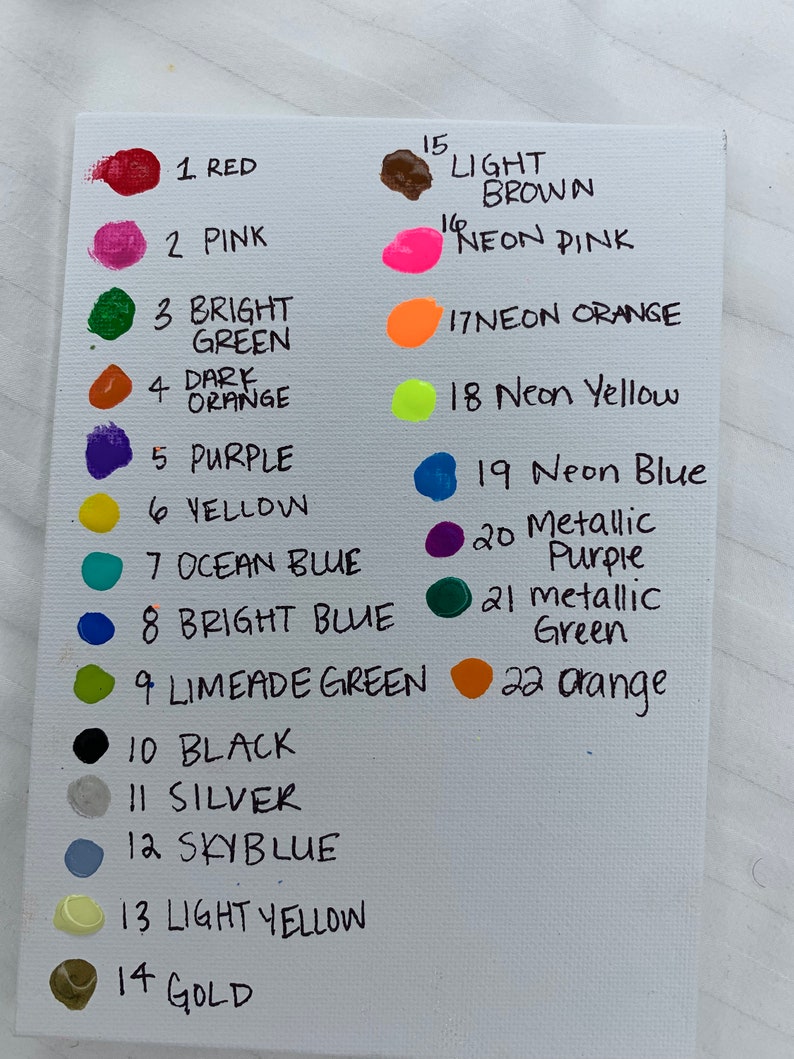 1 RED
2 PINK
3 BRIGHT
GREEN
4 DARK
ORANGE
5 PURPLE
6 YELLOW
7 OCEAN BLUE
8 BRIGHT BLUE
9 LIMEADE GREEN
10 BLACK
11 SILVER
12 SKYBLUE
13 LIGHT YELLOW
14 GOLD
15 LIGHT
BROWN
16 NEON PINK
17 NEON ORANGE
18 Neon Yellow
19 Neon Blue
20 Metallic
Purple
21 metallic
Green
22 orange